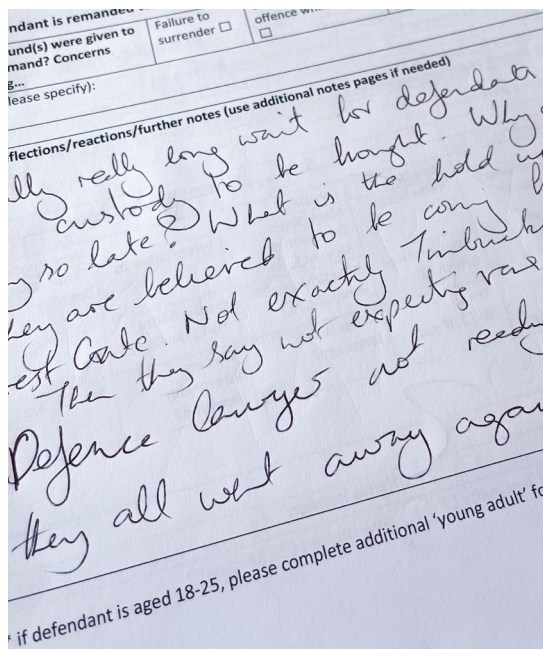 ndant is remanded
und(s) were given to
mand? Concerns
g...
lease specify):
Failure to
surrender
offence
flections/reactions/further notes (use additional notes pages if needed)
lly really long wait for defendants
custody to be brought. Why
so late? What is the hold up
hey are believed to be coming
est Gate. Not exactly Timbuck
Then they say not expecting
Defence lawyer not ready
they all went away again
* if defendant is aged 18-25, please complete additional 'young adult' fo